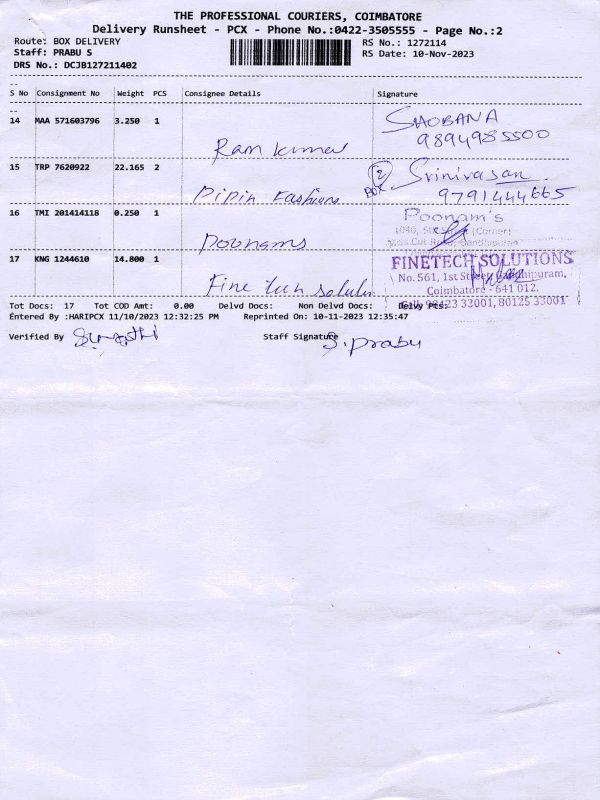 THE PROFESSIONAL COURIERS, COIMBATORE
Delivery Runsheet - PCX - Phone No.:0422-3505555 - Page No.:2
Route: BOX DELIVERY
RS No.: 1272114
Staff: PRABU S
RS Date: 10-Nov-2023
DRS No.: DCJB127211402
S No Consignment No Weight PCS Consignee Details Signature
14 MAA 571603796 3.250 1 Ram kumar SHOBANA
9894985500
15 TRP 7620922 22.165 2 Pipin Fashions 2 BOX Srinivasan
9791444665
16 TMI 201414118 0.250 1 Poonams Poonam's
1040, (Corner)
Cut Gandhipuram
17 KNG 1244610 14.800 1 Fine FINETECH SOLUTIONS
No. 561, 1st Street, Gandhipuram,
Coimbatore - 641 012.
Cell: 98423 33001, 80125 33001
Tot Docs: 17 Tot COD Amt: 0.00 Delvd Docs: Non Delvd Docs: Delvy Pts:
Entered By :HARIPCX 11/10/2023 12:32:25 PM Reprinted On: 10-11-2023 12:35:47
Verified By Staff Signature S. prabu